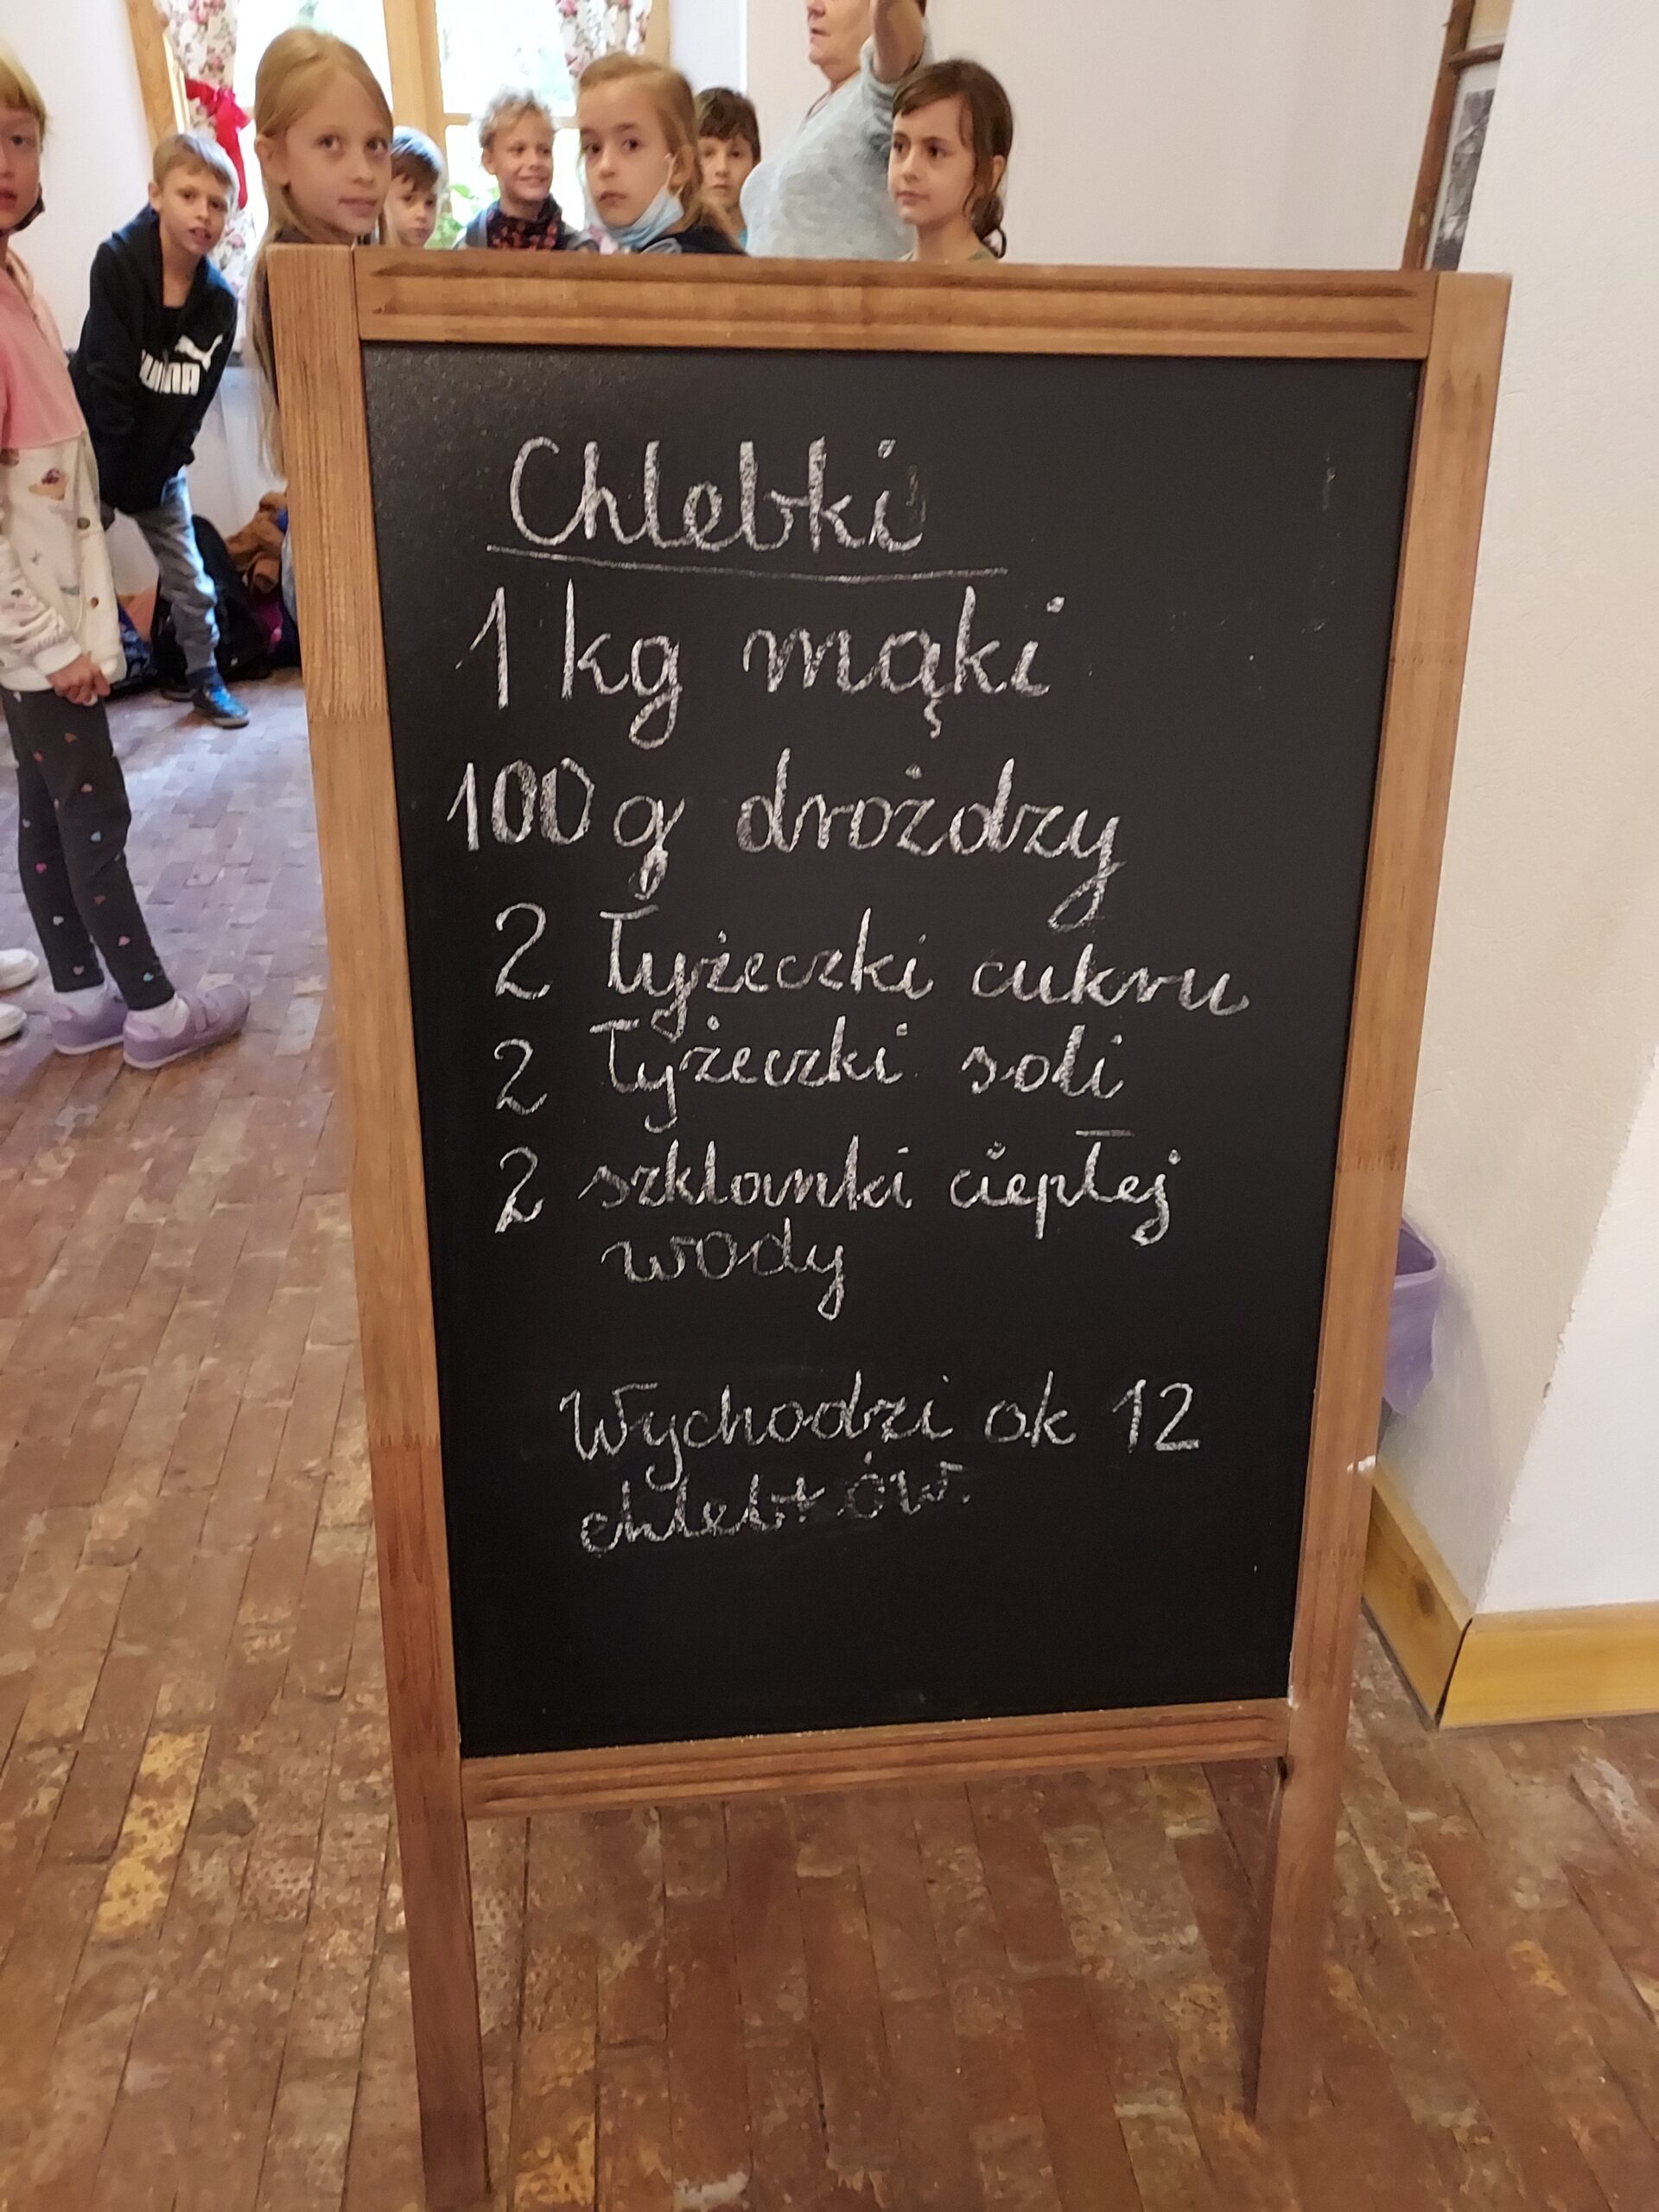 PUMA
Chlebki
1 kg mąki
100 g drożdzy
2 łyżeczki cukru
2 łyżeczki soli
2 szklanki ciepłej
wody
Wychodzi ok 12
chlebków.